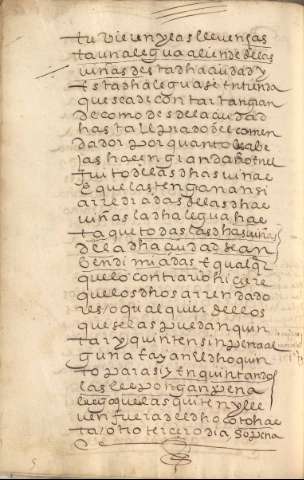 tuvieren y las lleven fas
ta una legua aliende de las
viñas desta dha ciudad y
esta dha legua se entienda
que sea de contar tan gran
de como des de la ciudad
hasta el prado del comen
dador por quanto las abe
jas hacen gran daño en el
fruto de las dhas viñas
E que las tengan ansi
arredradas de las dhas
viñas la dha legua has
ta que todas las dhas viñas
de la dha ciudad sean
bendimiadas E qualqr
que lo contrario hiciere
que los dhos arrendado
res / o qualquier dellos
que se las puedan quin
tar y quinten sin pena al
guna e ayan el dho quin
to para si y en quintando
las les pongan pena
que las quiten y lle
ven fuera del dho coto has
ta otro tercero dia so pena